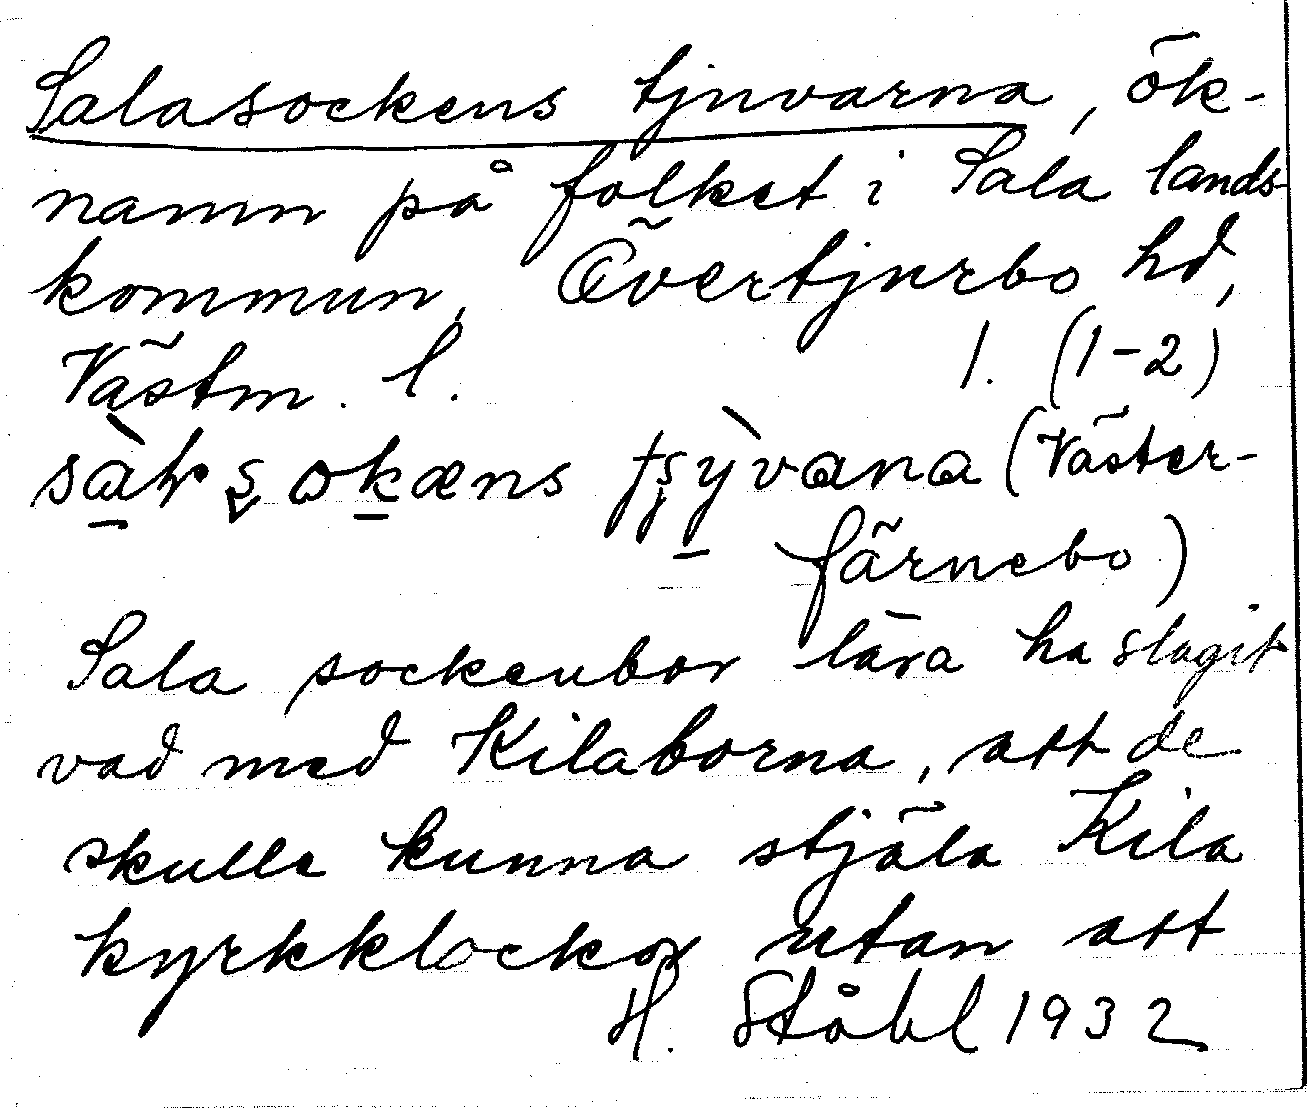 Salasockens tjuvarna, ök-
namn på folket i Sala lands-
kommun, Övertjurbo hd,
Västm. l. 1. (1-2)
(Väster-
färnebo)
Sala sockenbor lära ha slagit
vad med Kilaborna, att de
skulle kunna stjäla Kila
kyrkklockor utan att
H. Ståhl 1932